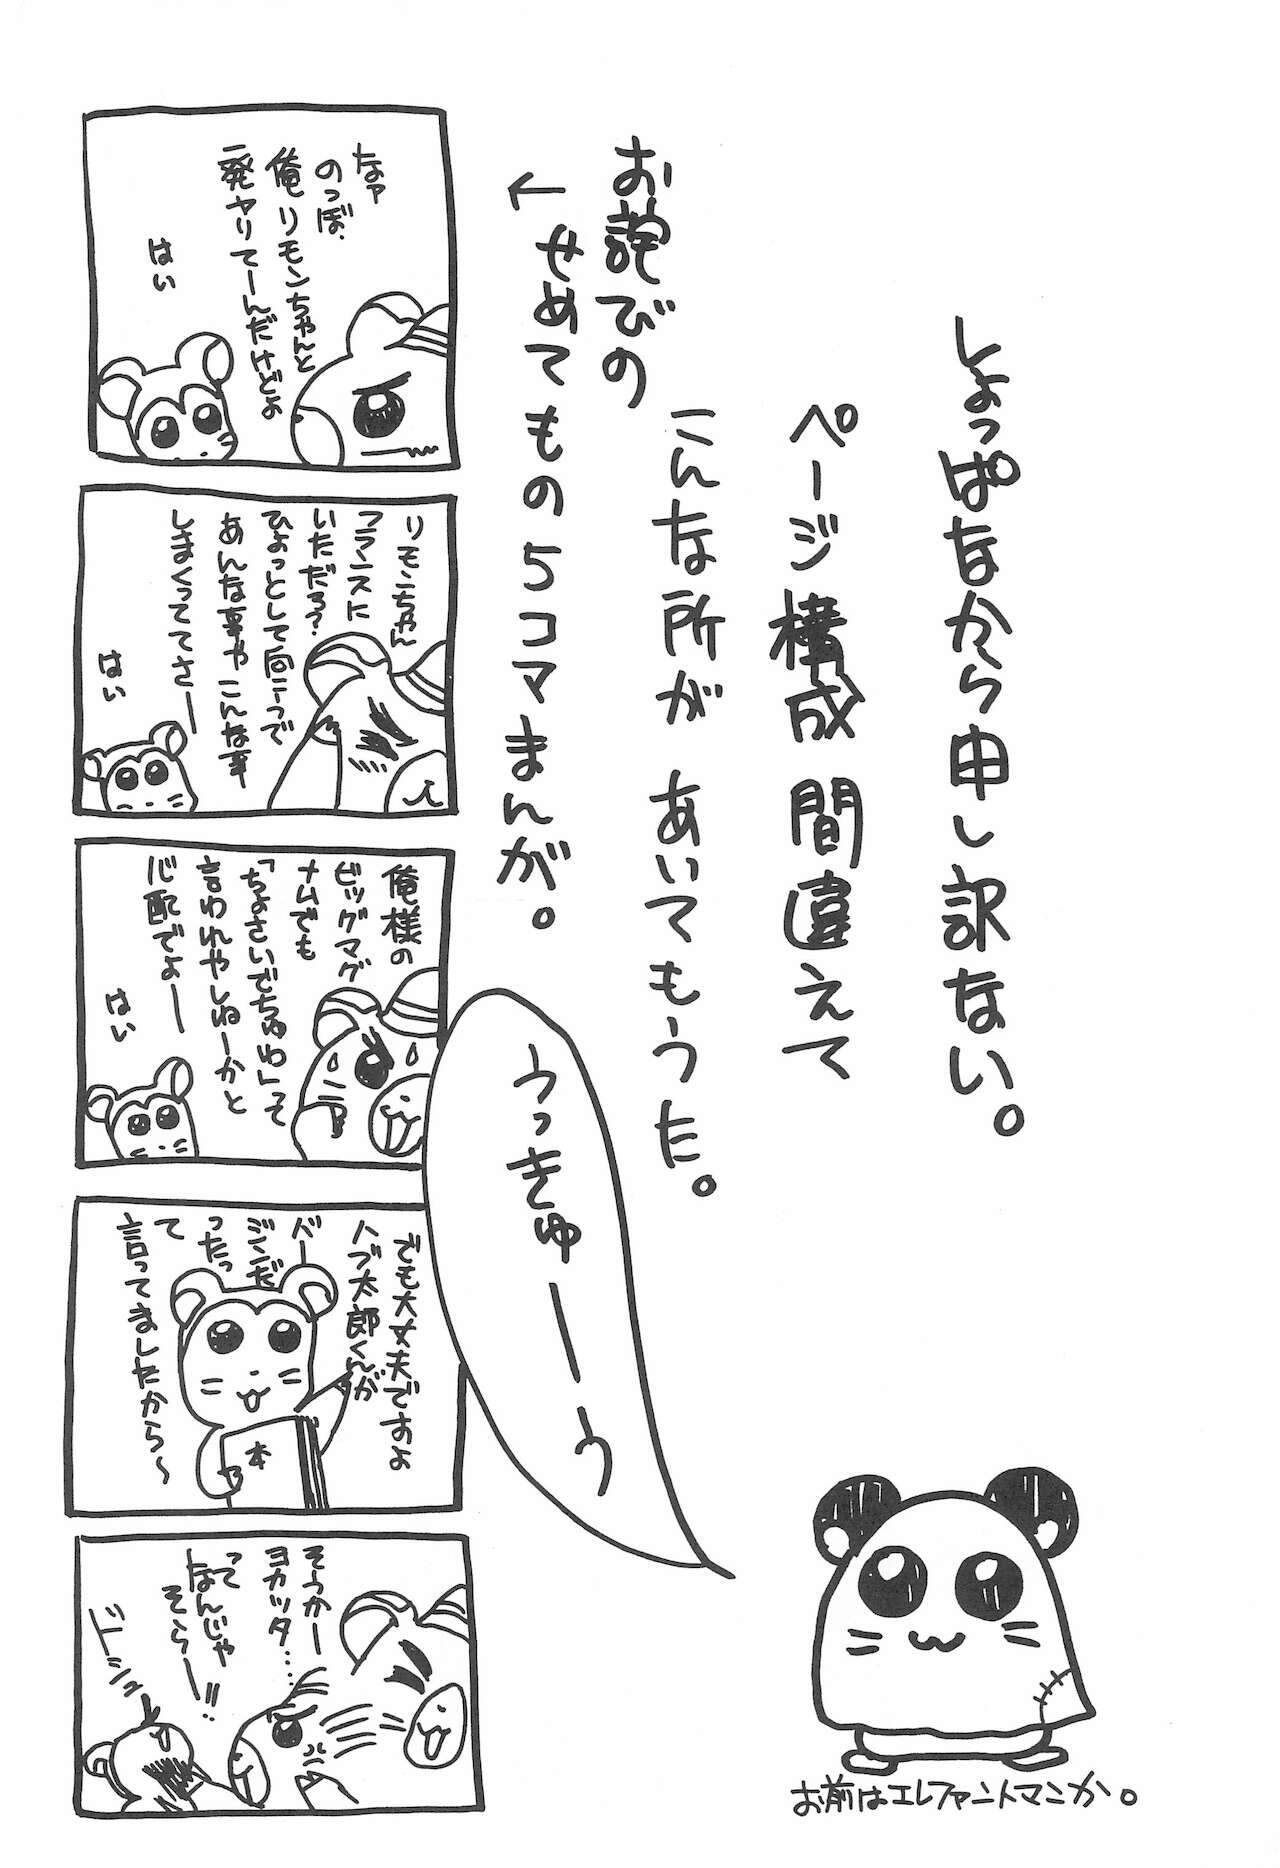 しょっぱなから申し訳ない。
ページ構成間違えて
こんな所があいてもうた。
お詫びの
せめてもの5コマまんが。
←
うっきゅーーう
お前はエレファントマンか。
なァ
のっぽ、
俺リモンちゃんと
一発ヤりてーんだけどよ
はい
リモンちゃん
フランスに
いただろ?
ひょっとして向こうで
あんな事やこんな事
しまくっててさー
はい
俺様の
ビッグマグ
ナムでも
「ちょさいでちゅね」って
言われやしねーかと
心配でよー
はい
でも大丈夫ですよ
ハブ太郎くんが
バー
ジンだ
ったっ
て
言ってましたから～
本
そうかー
ヨカッタ……
って
なんじゃ
そらー!!
ドシュ